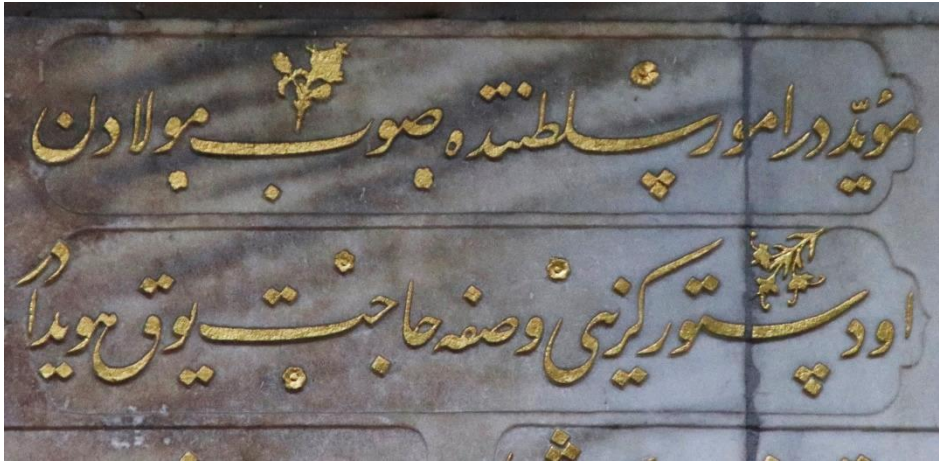 مُویّددر امور سلطنتده صوب مولادن
او دستور كزینی وصفه حاجت یوق هویدادر